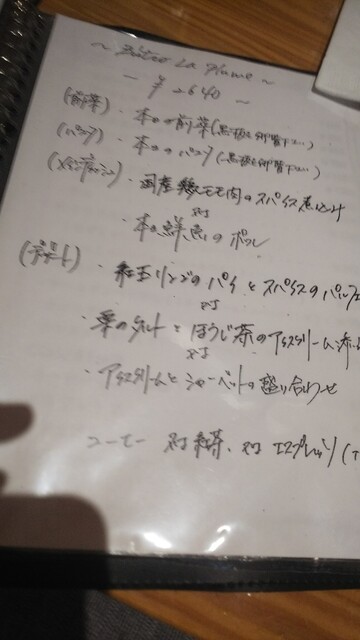 ～ Bistro La Plume ～
ー ¥ 2640 ～
(前菜)・本日の前菜(黒板を御覧下さい)
(パスタ)・本日のパスタ(黒板を御覧下さい)
(メインディッシュ)・国産鶏モモ肉のスパイス煮込み
又は
・本日鮮魚のポワレ
(デザート)・紅玉リンゴのパイとスパイスのパルフェ
又は
・栗のタルトとほうじ茶のアイスクリーム添え
又は
・アイスクリームとシャーベットの盛り合わせ
コーヒー 又は 紅茶、又は エスプレッソ (